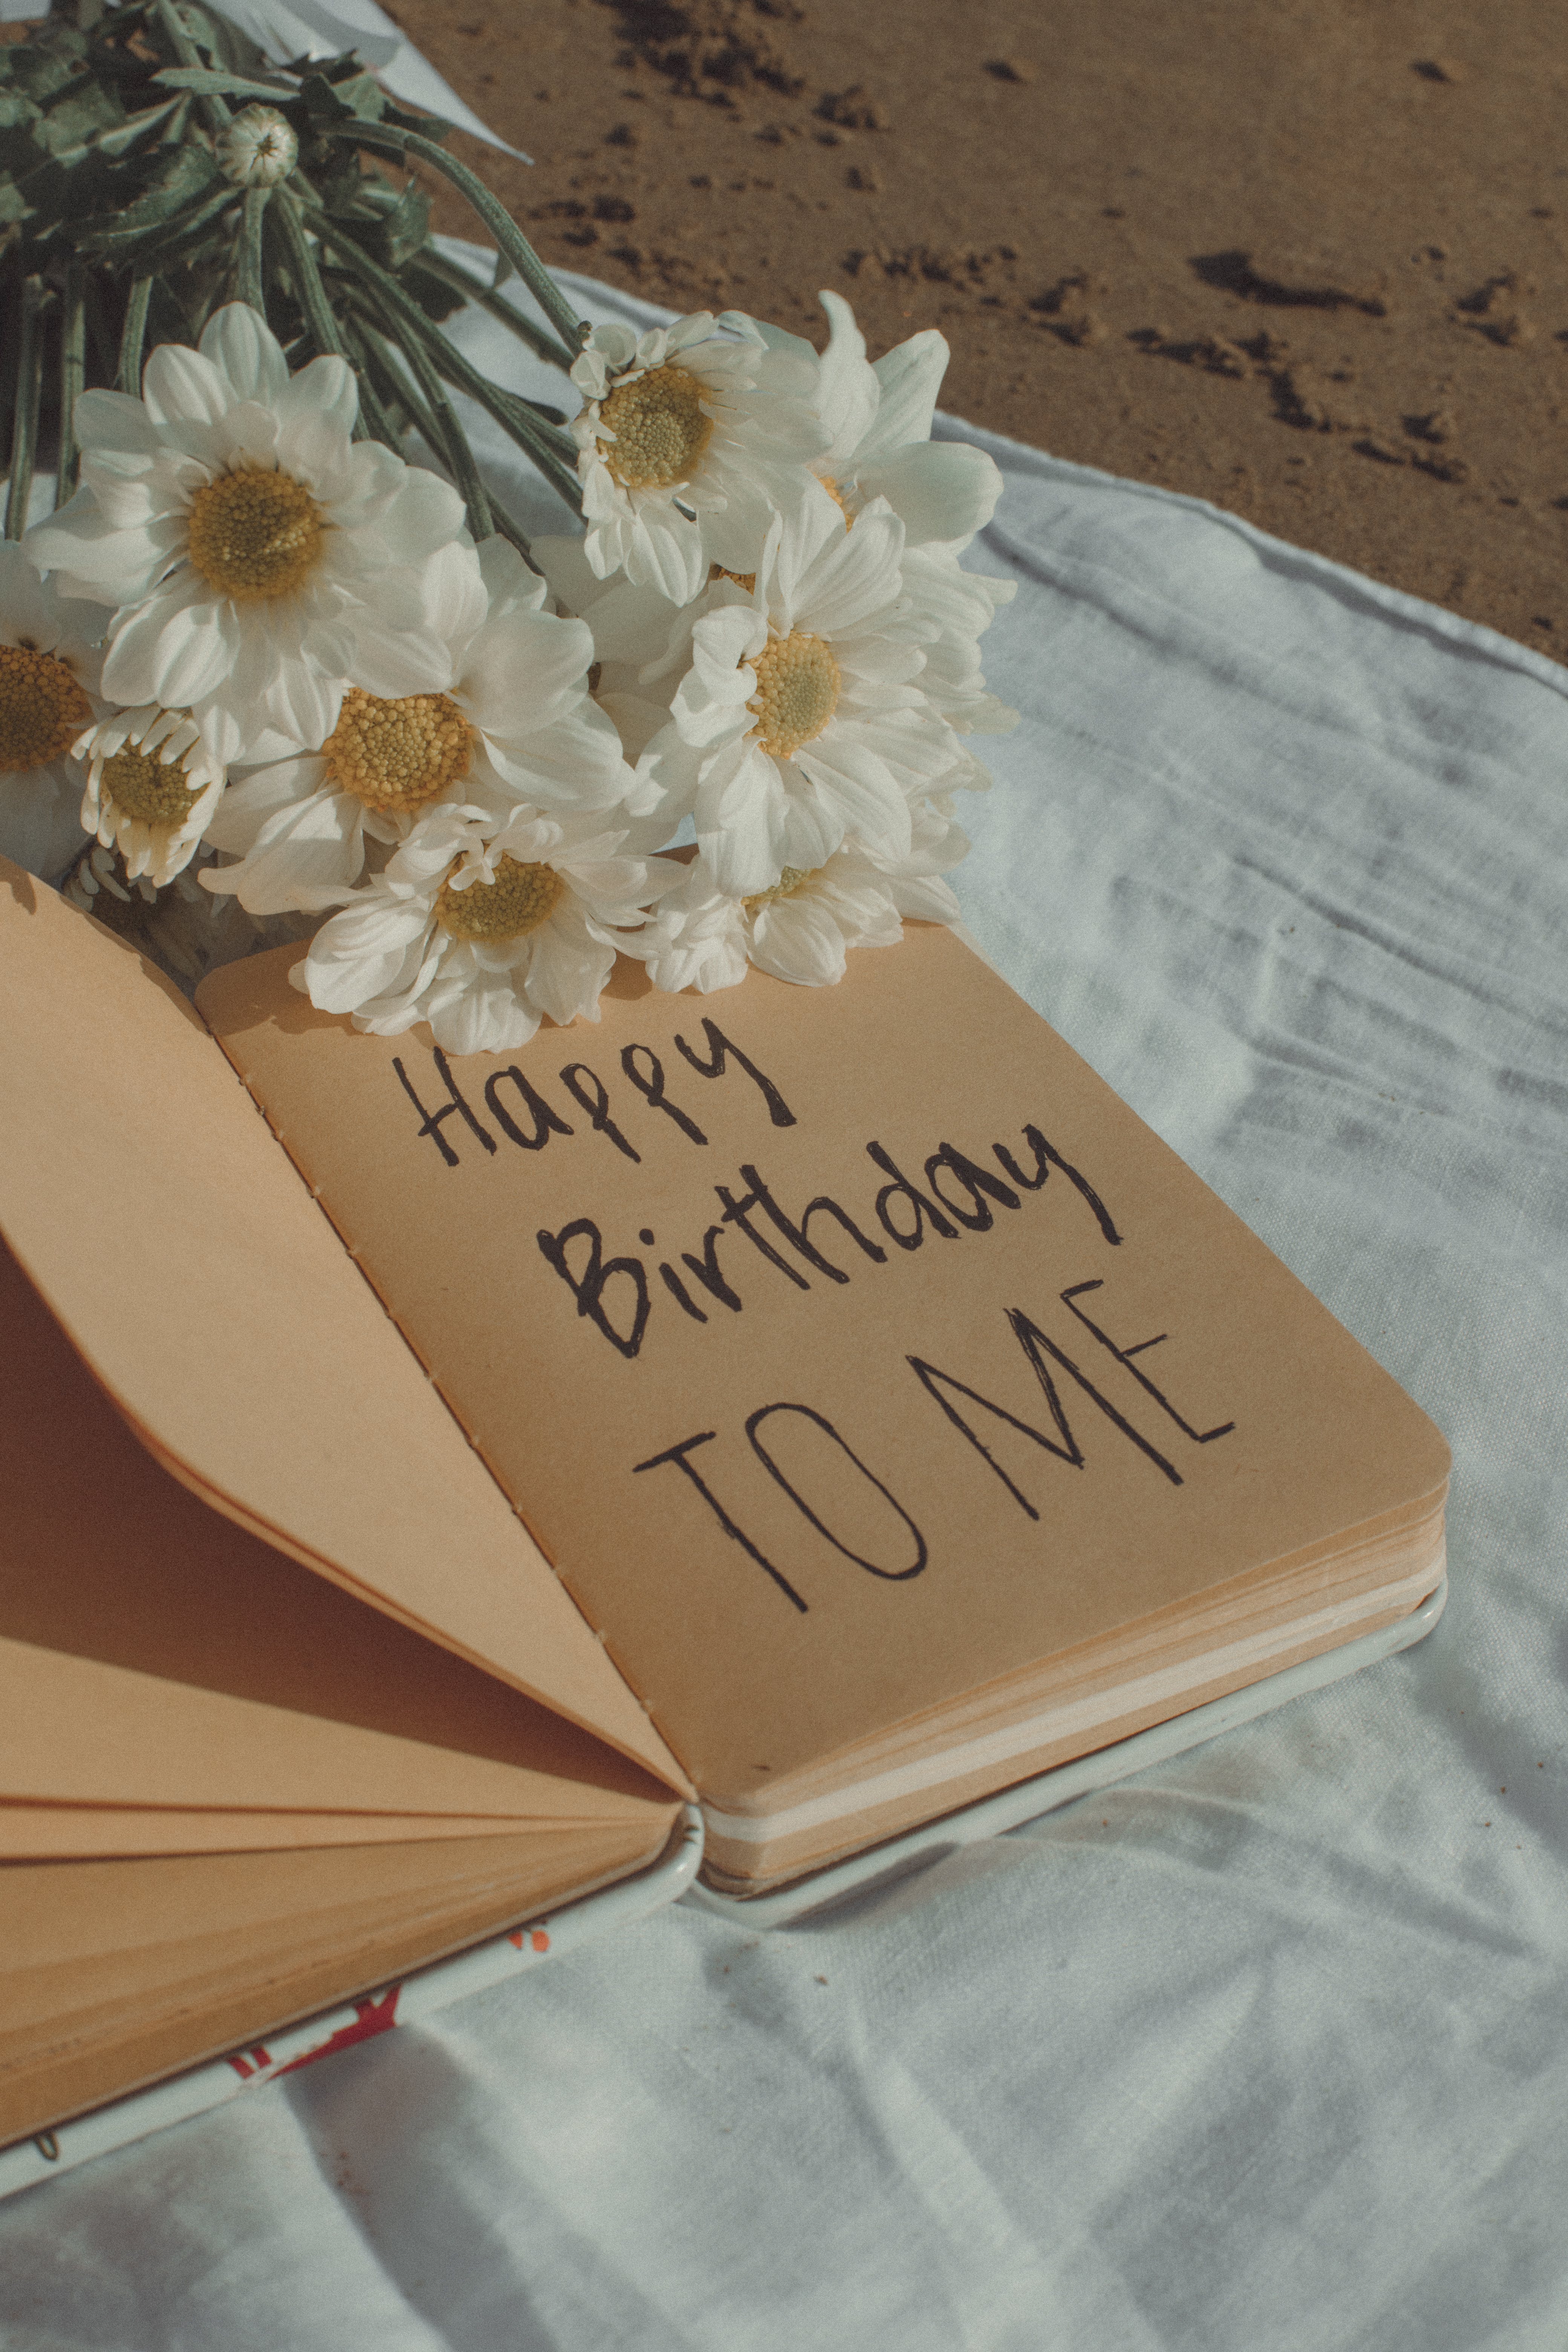 Happy
Birthday
TO ME